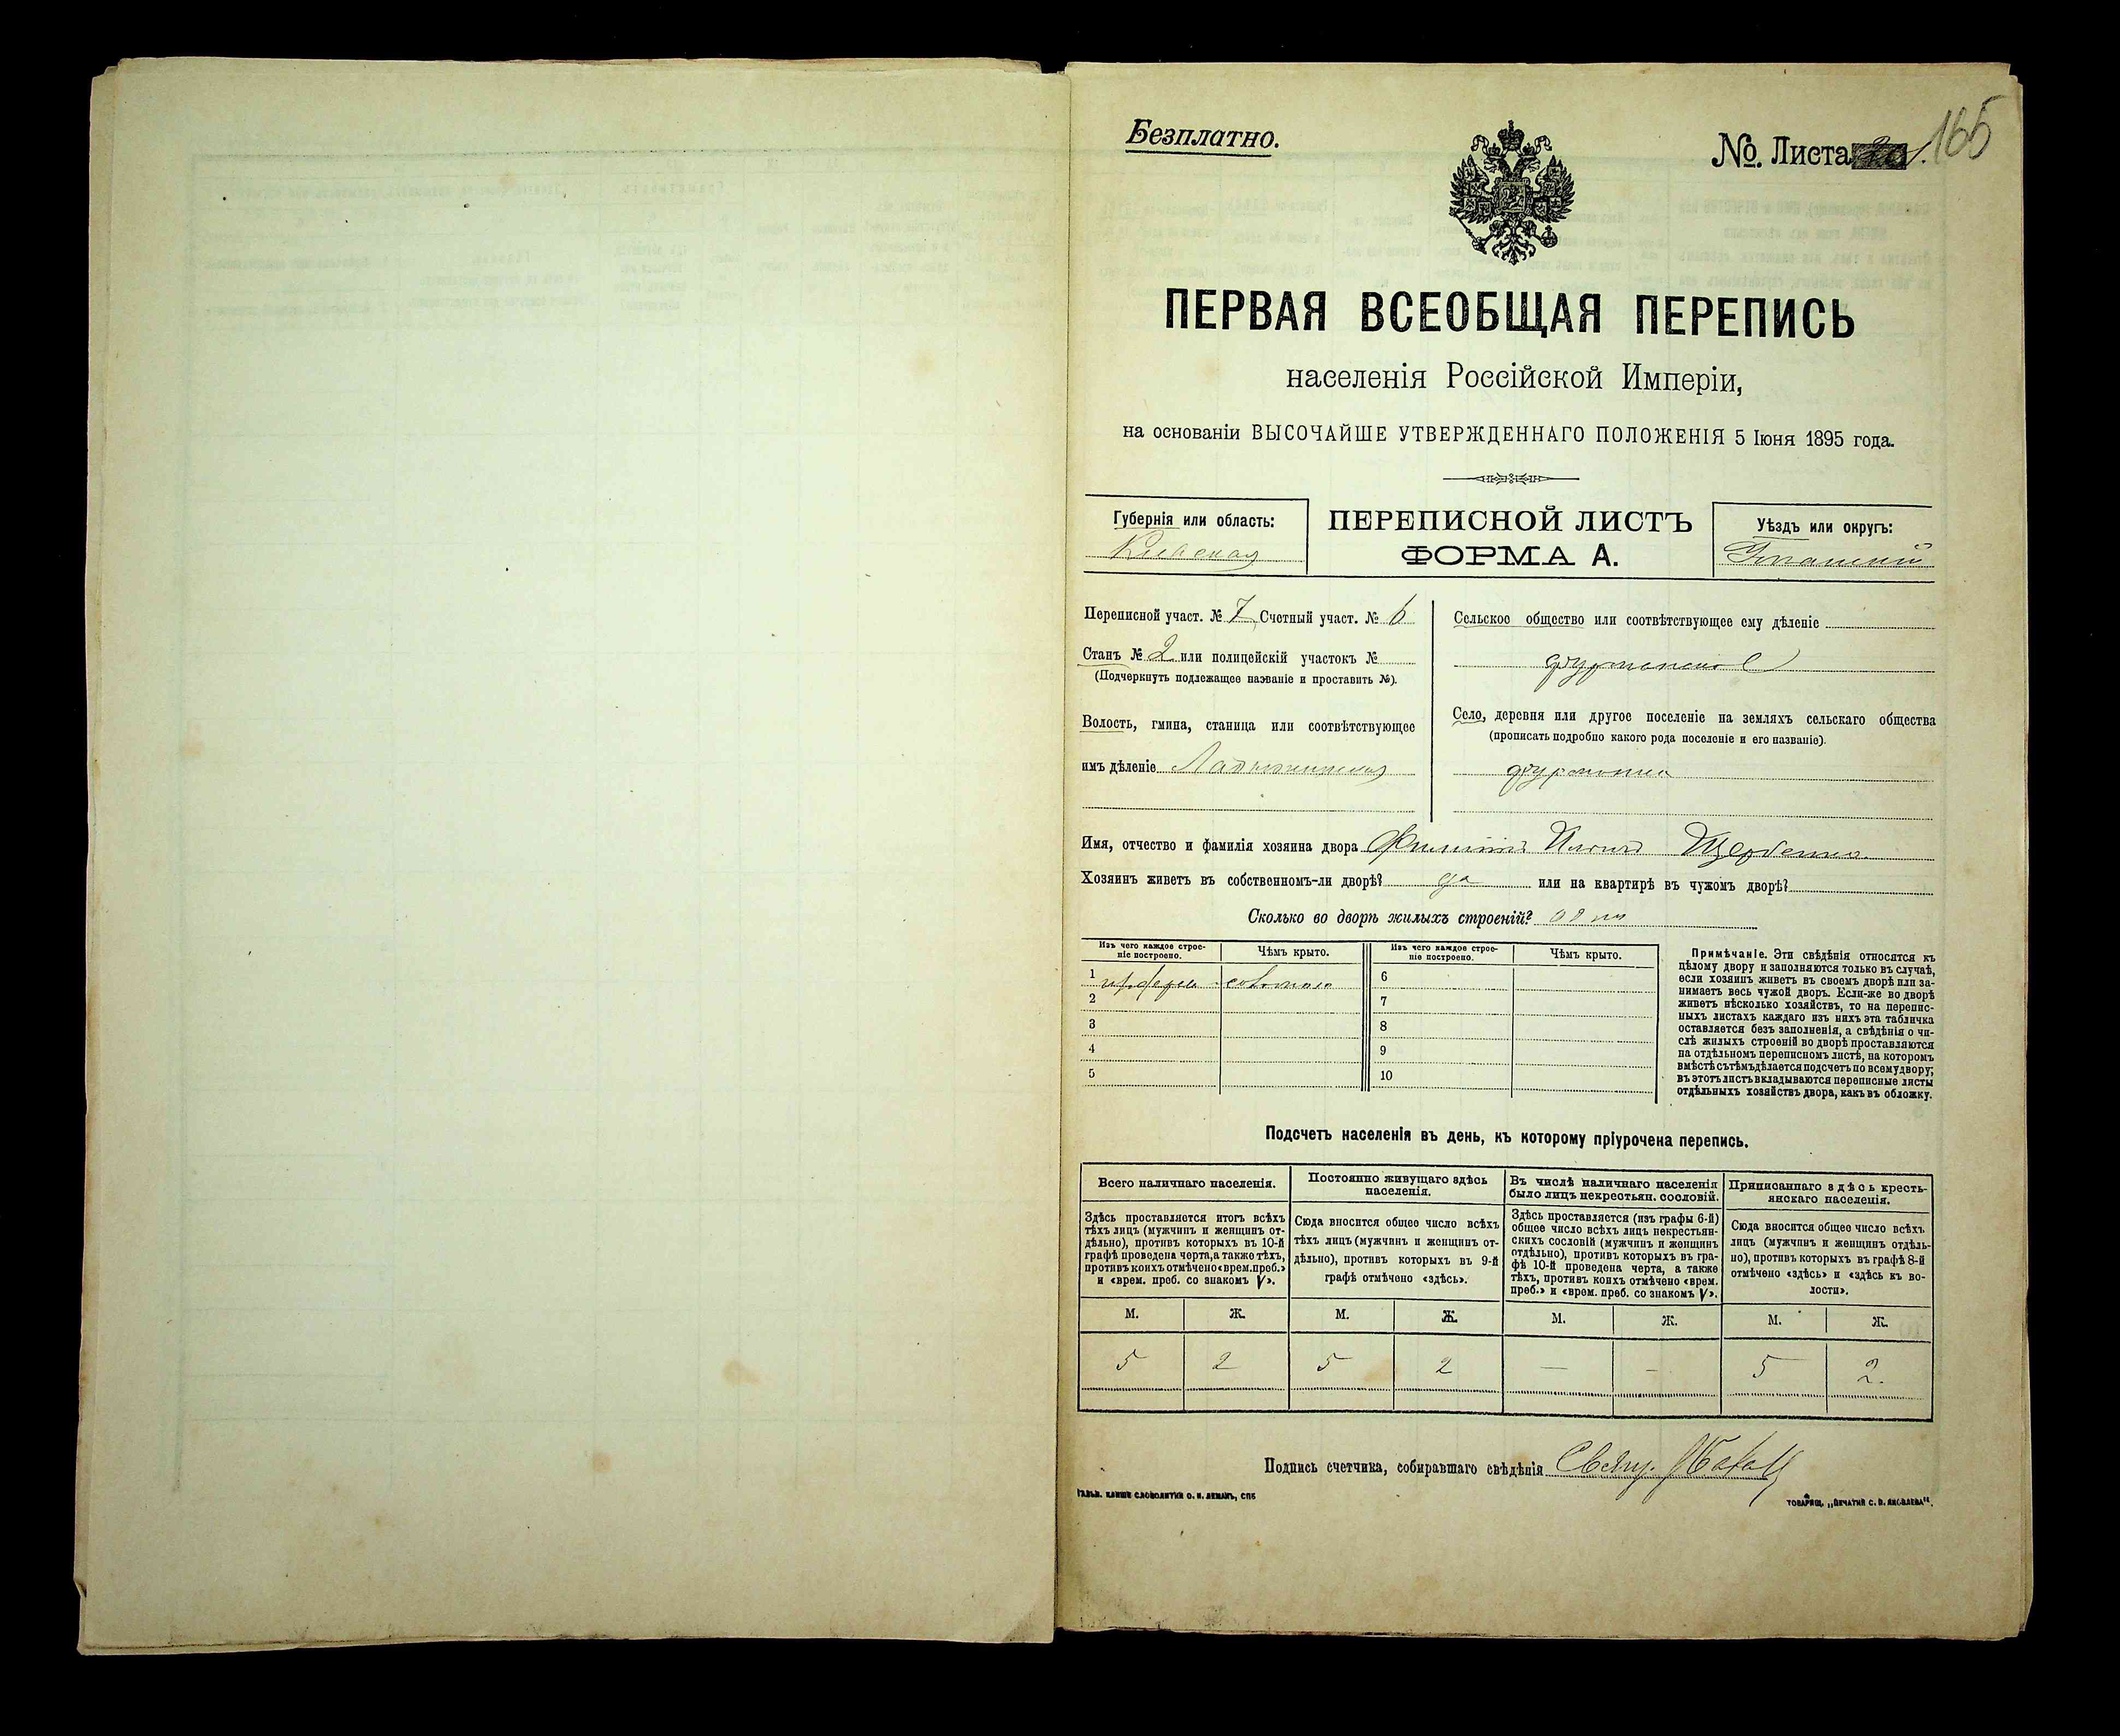 Безплатно.
№. Листа 165
ПЕРВАЯ ВСЕОБЩАЯ ПЕРЕПИСЬ
населенія Россійской Имперіи,
на основаніи ВЫСОЧАЙШЕ УТВЕРЖДЕННАГО ПОЛОЖЕНІЯ 5 Іюня 1895 года.
Губернія или область:
Кіевская
ПЕРЕПИСНОЙ ЛИСТЪ
ФОРМА А.
Уѣздъ или округъ:
Уманскій
Переписной участ. № 7 Счетный участ. № 6
Станъ № 2 или полицейскій участокъ №
(Подчеркнуть подлежащее названіе и проставить №).
Волость, гмина, станица или соотвѣтствующее
имъ дѣленіе Ладыжинская
Сельское общество или соотвѣтствующее ему дѣленіе
Фурманское
Село, деревня или другое поселеніе на земляхъ сельскаго общества
(прописать подробно какого рода поселеніе и его названіе).
Фурманка
Имя, отчество и фамилія хозяина двора Филиппъ Щербенко
Хозяинъ живетъ въ собственномъ-ли дворѣ? да или на квартирѣ въ чужомъ дворѣ?
Сколько во дворѣ жилыхъ строеній? одно
Изъ чего каждое строе-
ніе построено.
Чѣмъ крыто.
Изъ чего каждое строе-
ніе построено.
Чѣмъ крыто.
1 из дерева соломою
2
3
4
5
6
7
8
9
10
Примѣчаніе. Эти свѣдѣнія относятся къ
цѣлому двору и заполняются только въ случаѣ,
если хозяинъ живетъ въ своемъ дворѣ или за-
нимаетъ весь чужой дворъ. Если-же во дворѣ
живетъ нѣсколько хозяйствъ, то на перепис-
ныхъ листахъ каждаго изъ нихъ эта табличка
оставляется безъ заполненія, а свѣдѣнія о чи-
слѣ жилыхъ строеній во дворѣ проставляются
на отдѣльномъ переписномъ листѣ, на которомъ
вмѣстѣ съ тѣмъ дѣлается подсчетъ по всему двору;
въ этотъ листъ вкладываются переписные листы
отдѣльныхъ хозяйствъ двора, какъ въ обложку.
Подсчетъ населенія въ день, къ которому пріурочена перепись.
Всего наличнаго населенія.
Здѣсь проставляется итогъ всѣхъ
тѣхъ лицъ (мужчинъ и женщинъ от-
дѣльно), противъ которыхъ въ 10-й
графѣ проведена черта, а также тѣхъ,
противъ коихъ отмѣчено «врем. преб.»
и «врем. преб. со знакомъ V».
Постоянно живущаго здѣсь
населенія.
Сюда вносится общее число всѣхъ
тѣхъ лицъ (мужчинъ и женщинъ от-
дѣльно), противъ которыхъ въ 9-й
графѣ отмѣчено «здѣсь».
Въ числѣ наличнаго населенія
было лицъ некрестьян. сословій.
Здѣсь проставляется (изъ графы 6-й)
общее число всѣхъ лицъ некрестьян-
скихъ сословій (мужчинъ и женщинъ
отдѣльно), противъ которыхъ въ гра-
фѣ 10-й проведена черта, а также
тѣхъ, противъ коихъ отмѣчено «врем.
преб.» и «врем. преб. со знакомъ V».
Приписаннаго здѣсь кресть-
янскаго населенія.
Сюда вносится общее число всѣхъ
лицъ (мужчинъ и женщинъ отдѣль-
но), противъ которыхъ въ графѣ 8-й
отмѣчено «здѣсь» и «здѣсь къ во-
лости».
М. Ж. М. Ж. М. Ж. М. Ж.
5 2 5 2 — - 5 2.
Подпись счетчика, собиравшаго свѣдѣнія
ГАЛЬВ. КЛИШЕ СЛОВОЛИТНИ О. И. ЛЕМАНЪ, СПБ
ТОВАРИЩ. „ПЕЧАТНЯ С. П. ЯКОВЛЕВА“.